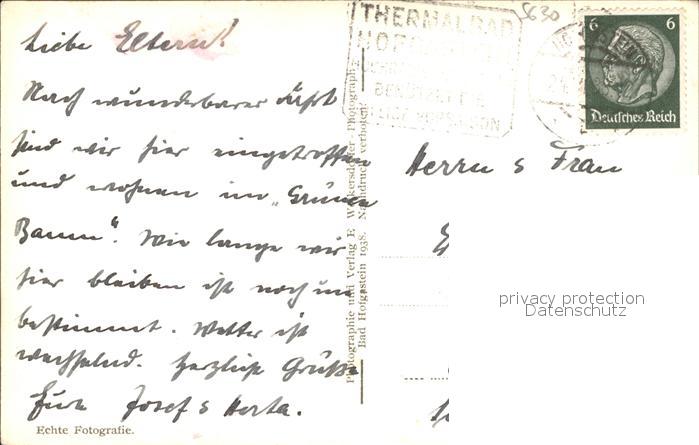 Liebe Eltern!
Nach wunderbarer Fahrt
sind wir hier eingetroffen
und wohnen im „Grünen
Baum“. Wie lange wir
hier bleiben ist noch un
bestimmt. Wetter ist
wechselnd. Herzliche Grüße
Eure Josef & Herta.
Echte Fotografie.
Photographie und Verlag E. Weikersdorfer - Photograph,
Bad Hofgastein 1938. Nachdruck verboten.
5630
THERMALBAD
HOFGASTEIN
6 6
Deutsches Reich
Herrn & Frau
privacy protection
Datenschutz